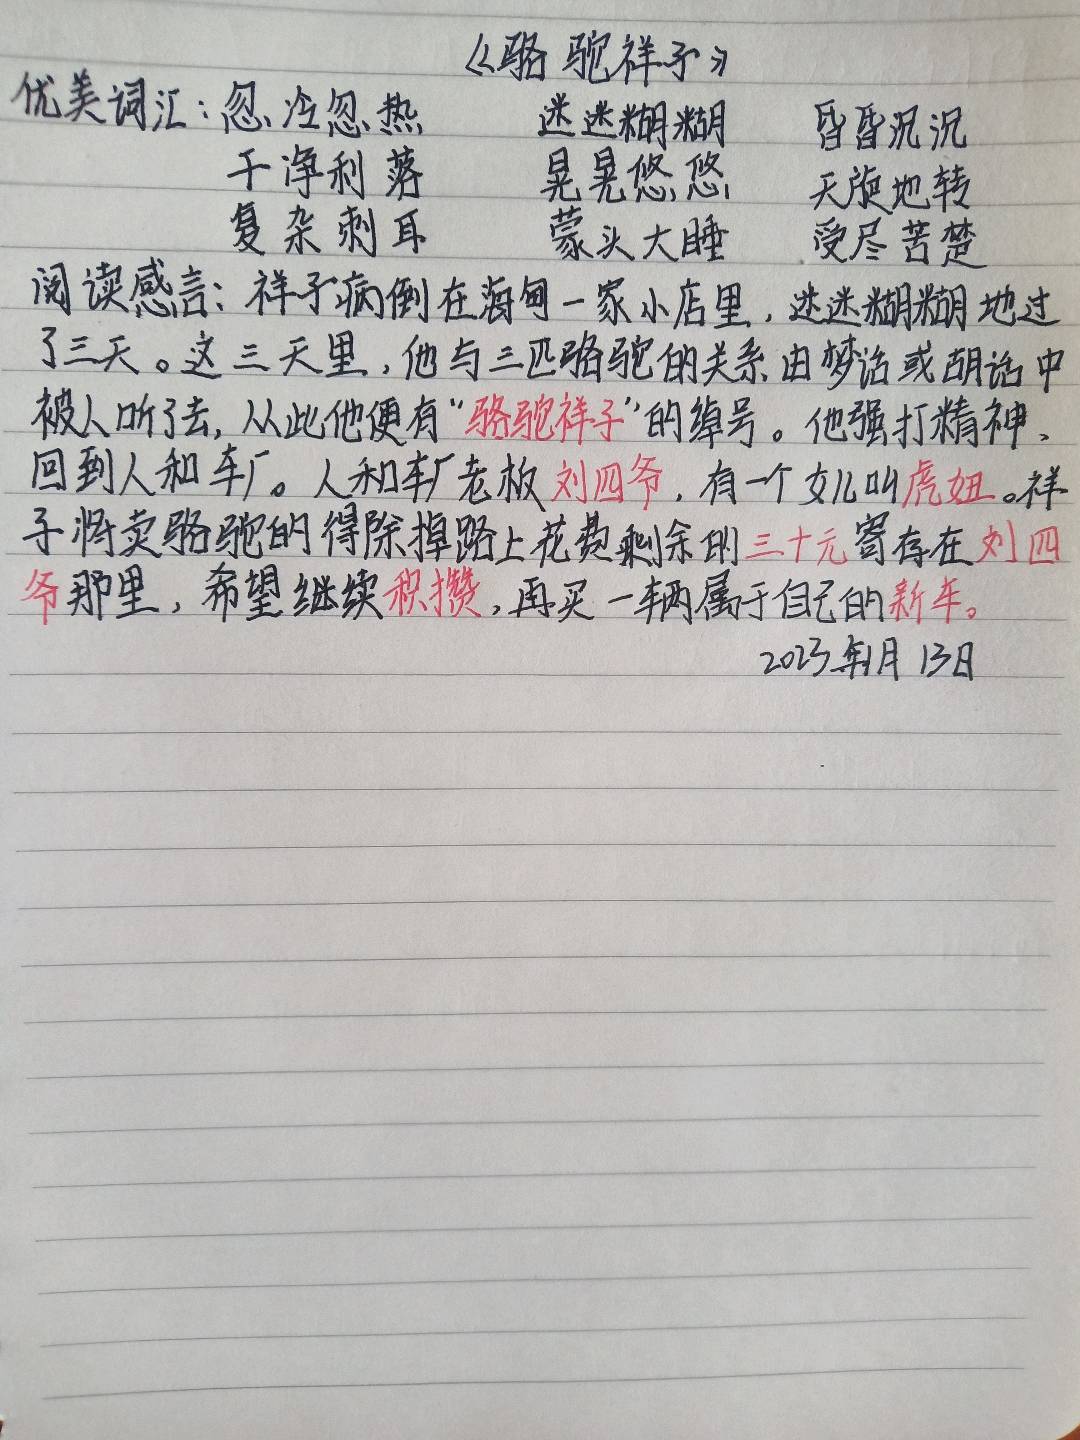 《骆驼祥子》
优美词汇：忽冷忽热 迷迷糊糊 昏昏沉沉
干净利落 晃晃悠悠 天旋地转
复杂刺耳 蒙头大睡 受尽苦楚
阅读感言：祥子病倒在海甸一家小店里，迷迷糊糊地过
了三天。这三天里，他与三匹骆驼的关系由梦话或胡话中
被人听了去，从此他便有“骆驼祥子”的绰号。他强打精神、
回到人和车厂。人和车厂老板刘四爷，有一个女儿叫虎妞。祥
子将卖骆驼的得除掉路上花费剩余的三十元寄存在刘四
爷那里，希望继续积攒，再买一辆属于自己的新车。
2023年1月13日